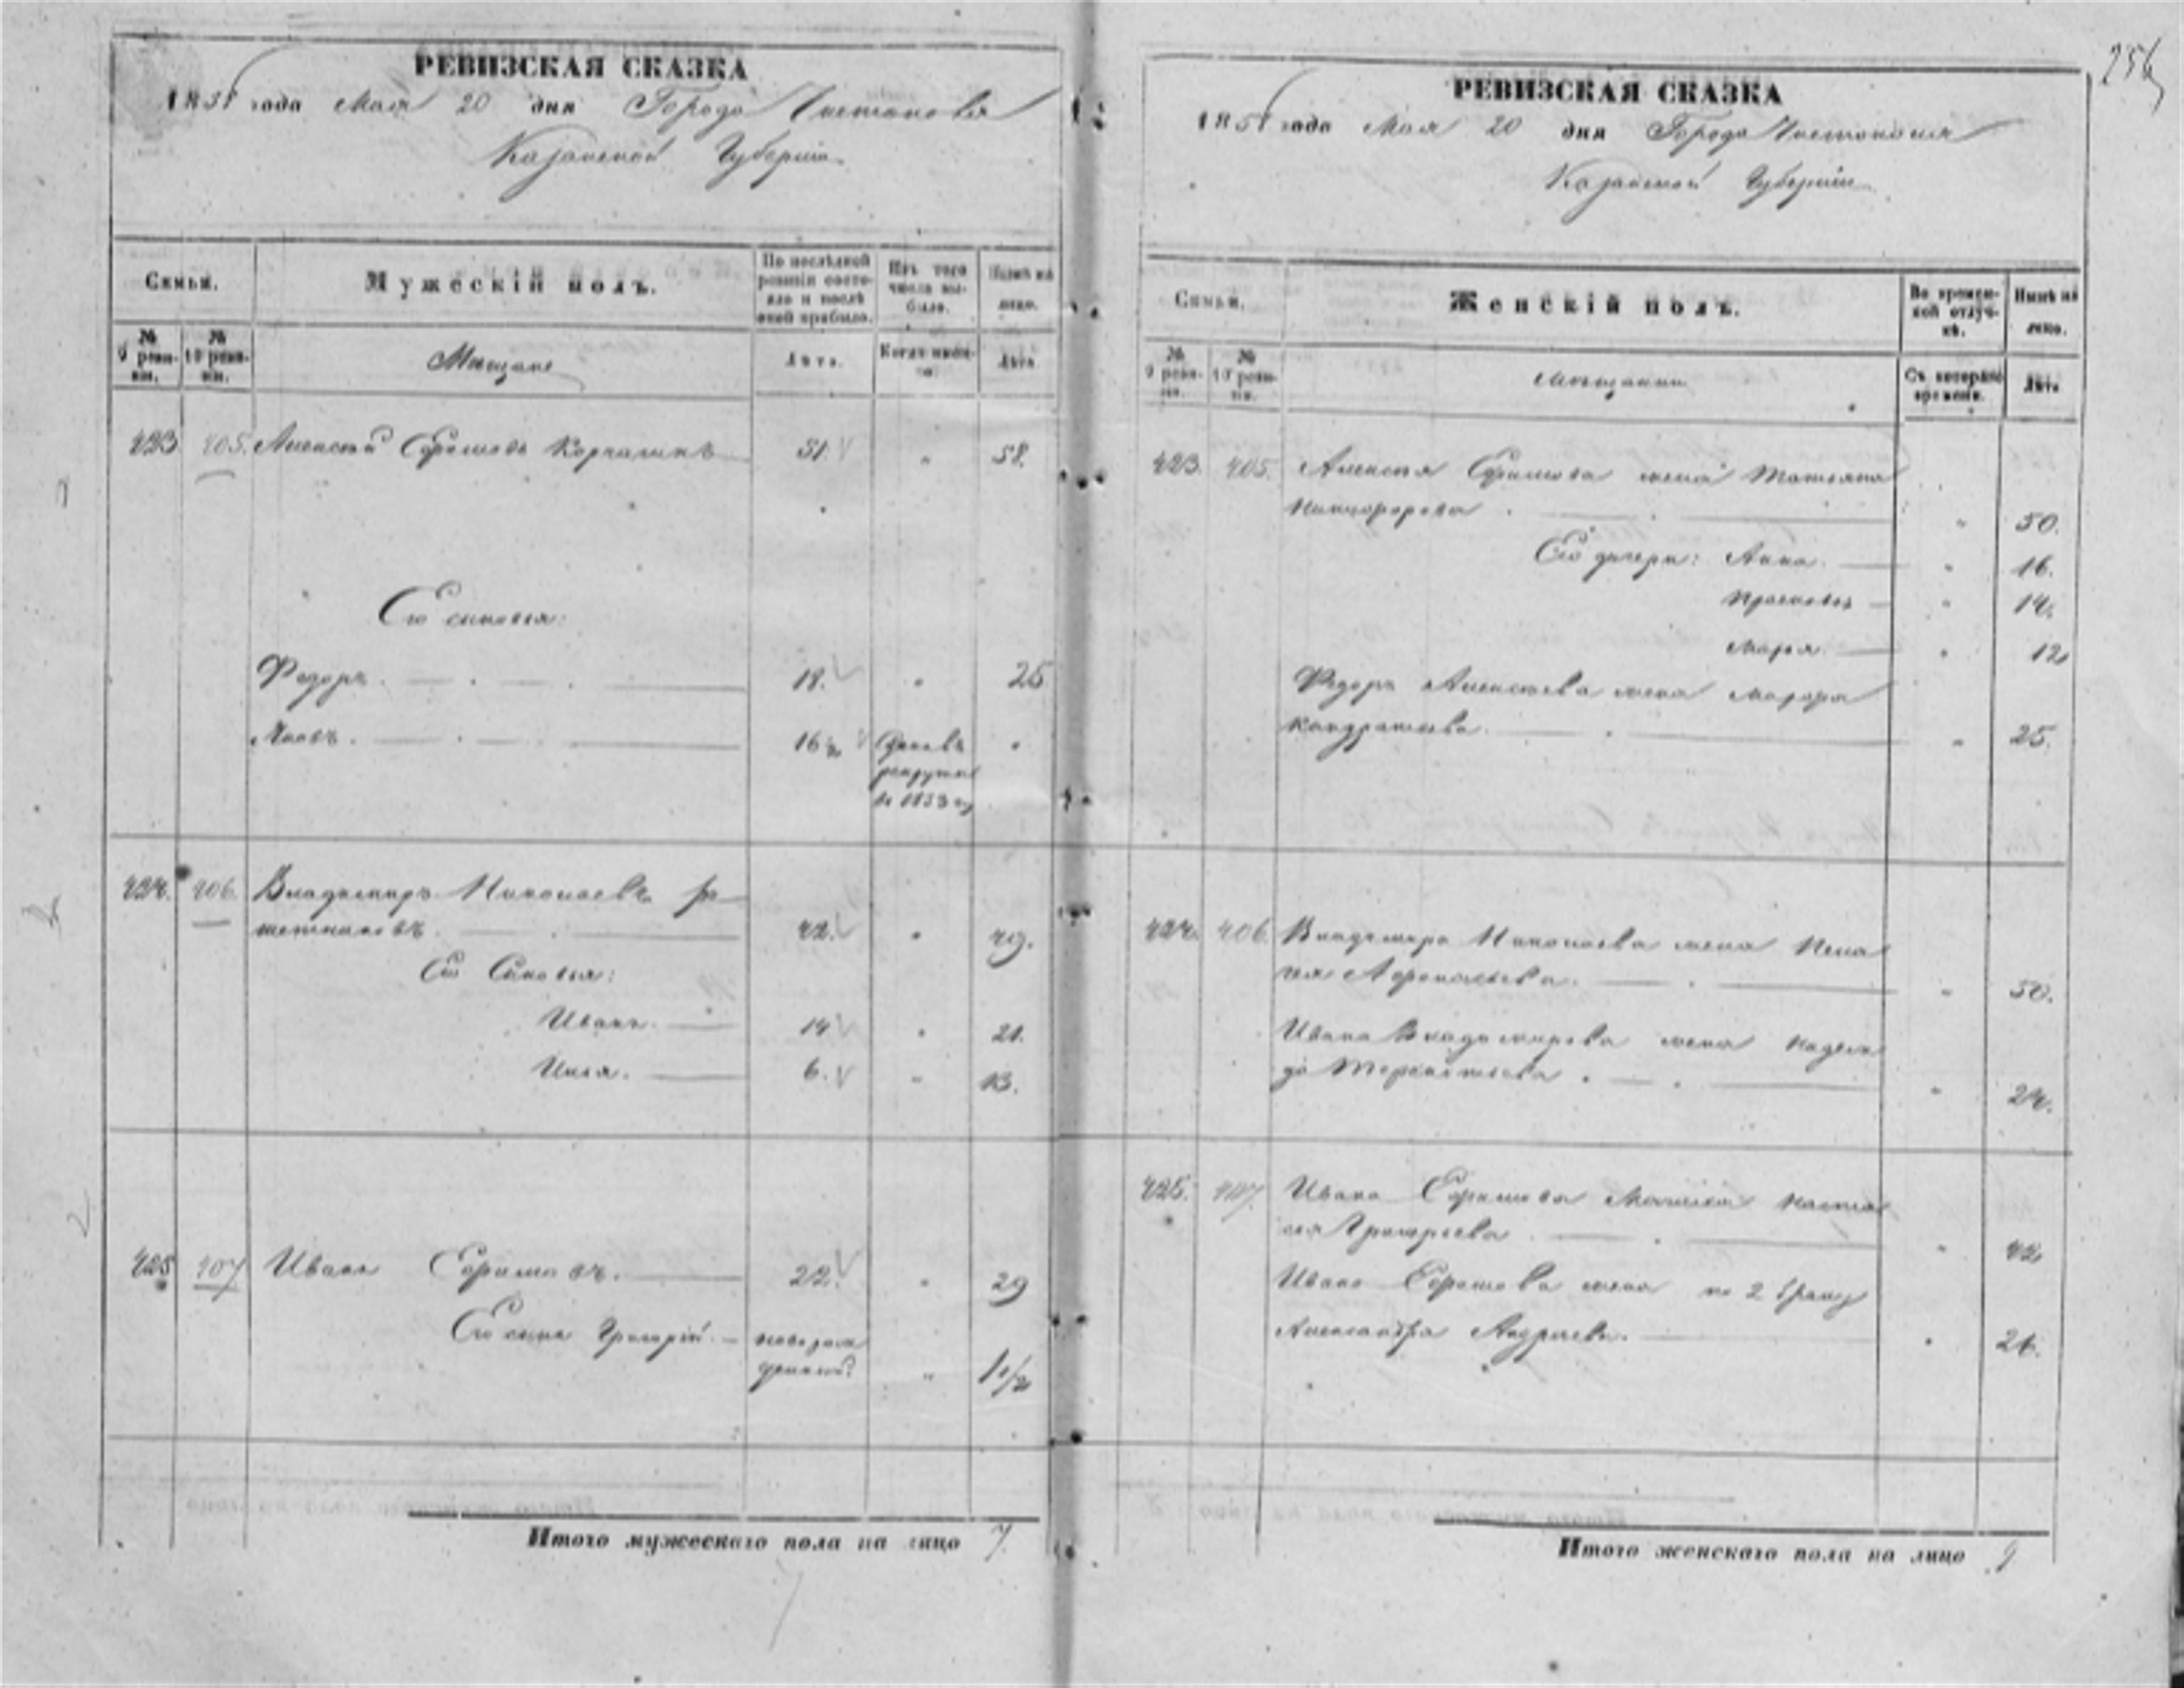 256
РЕВИЗСКАЯ СКАЗКА
1858 года Мая 20 дня Города Чистополя
Казанской Губернiи
Семьи.
Мужескiй полъ.
По послѣдней ревизiи состояло и послѣ оной прибыло.
Изъ того числа выбыло.
Нынѣ на лицо.
№ 9 ревизiи.
№ 10 ревизiи.
Мещане
Лѣта.
Когда именно.
Лѣта
423 405. Алексѣй Ефимовъ 51. " 58.
Его сыновья:
Федоръ. 18. " 25
Яковъ. 16 "
рекруты
в 1853 г
424. 406. Владимиръ Николаевъ Ре-
шетниковъ. 42. " 49.
Его Сыновья:
Иванъ. 14 " 21.
Илья. 6. " 13.
425 407 Иванъ Ефимовъ. 22. " 29
Его сынъ Григорiй. новорож
денный " 1 1/2
Итого мужескаго пола на лицо 7.
РЕВИЗСКАЯ СКАЗКА
1858 года Мая 20 дня Города Чистополя
Казанской Губернiи
Семьи.
Женскiй полъ.
Во временной отлучкѣ.
Нынѣ на лицо.
№ 9 ревизiи.
№ 10 ревизiи.
Мещанки
Съ котораго времени.
Лѣта
423. 405. Алексѣя Ефимова жена Татьяна
Никифорова " 50.
Его дочери: Анна. " 16.
Прасковья " 14.
Марья. " 12
Федора Алексѣева жена
Кондратьева. " 25.
424. 406. Владимира Николаева жена Пела
гея Афонасьева. " 50.
Ивана Владимирова жена Надеж
да Терентьева. " 24.
425. 407. Ивана Ефимова Мачиха Настас
ия Григорьева " 42
Ивана Ефимова жена по 2 браку
Александра Андреева. " 21.
Итого женскаго пола на лицо 9